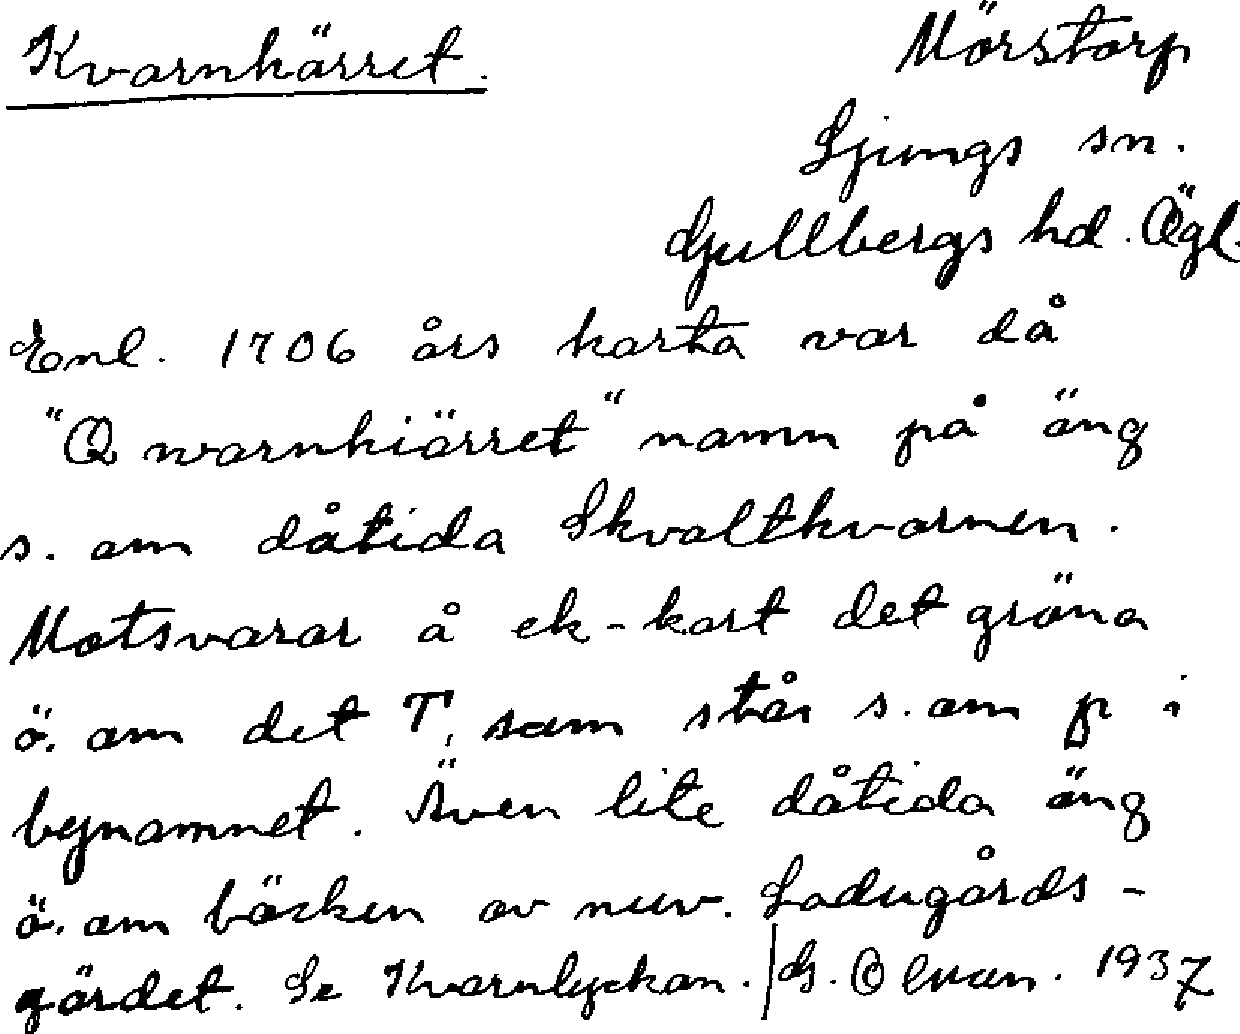 Kvarnkärret.
Mörstorp
Ljungs sn.
Gullbergs hd. Ögl.
Enl. 1706 års karta var då
"Qwarnkiärret" namn på äng
s. om dåtida Skvaltkvarnen.
Motsvarar å ek-kart det gröna
ö. om det T, som står s. om p i
bynamnet. Även lite dåtida äng
ö. om bäcken av nuv. Ladugårds-
gärdet. Se Kvarnlyckan. / G. 1937